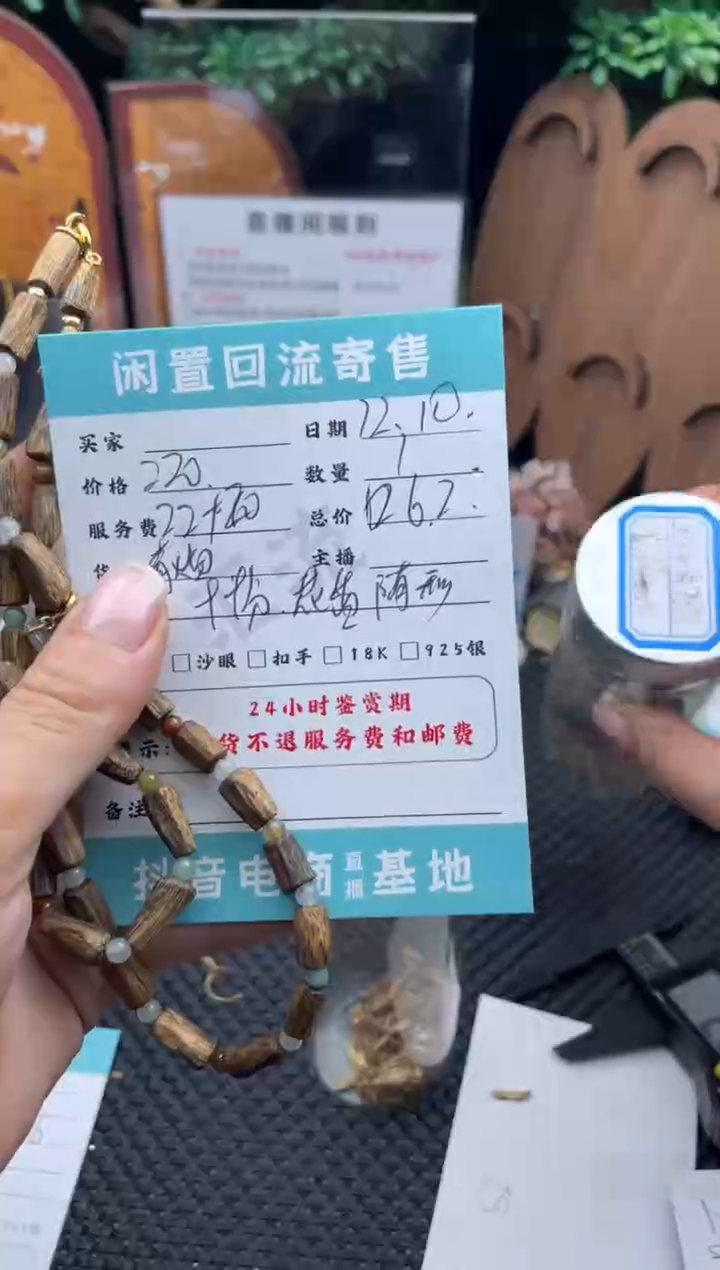 直播间规则
闲置回流寄售
买家 日期 12.10.
价格 220. 数量 1
服务费 22+20 总价 262.
主播
随形
沙眼 扣手 18K 925银
24小时鉴赏期
示: 货不退服务费和邮费
备注
抖音电商直播基地